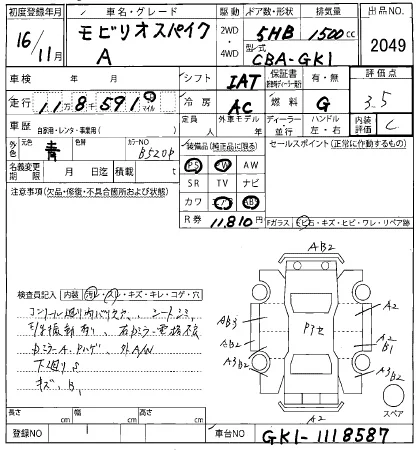 初度登録年月 車名・グレード 駆動 ドア数・形状 排気量 出品NO
16/11月 モビリオスパイク 2WD・4WD 5HB 1500cc 2049
A 型式 CBA-GK1
車検 年 月 シフト IAT 保証書 有・無 評価点
走行 11万8千591 マイル 冷房 AC 燃料 G 3.5
車歴 自家用・レンタ・事業用( ) 定員 人 外車モデル 年 ディーラー 並行 ハンドル 左・右 内装評価 C
外色 元色 青 色替 カラーNO B520P 装備品(純正品に限る) セールスポイント(正常に作動するもの)
名義変更期限 月 日迄 積載 t PS PW AW
注意事項(欠品・修復・不具合箇所および状態) SR TV ナビ
カワ エアB AB
R券 11,810円 Fガラス トビ石・キズ・ヒビ・ワレ・リペア跡
AB2
検査員記入 内装 汚レ・スレ・キズ・キレ・コゲ・穴
シートシミ
AB3 Pアセ A2
AB2 A2
B1
カミラーA ハゲ、外A/W
A3B2 A3B2
下廻りS
キズ、B1
スペア
長さ cm 幅 cm 高さ cm A2
登録NO 車台NO GK1-1118587